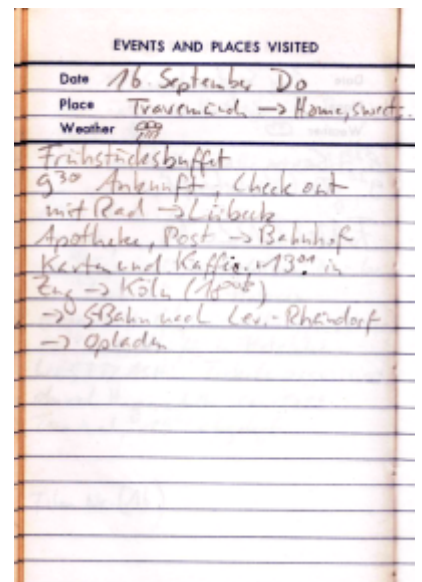 EVENTS AND PLACES VISITED
Date 16. September Do
Place Travemünde → Home, sweet
Weather
Frühstücksbuffet
9³⁰ Ankunft, Check out
mit Rad → Lübeck
Apotheke, Post → Bahnhof
Karten und Kaffee. 13⁰¹ in
Zug → Köln
→ S-Bahn nach Lev.-Rheindorf
→ Opladen